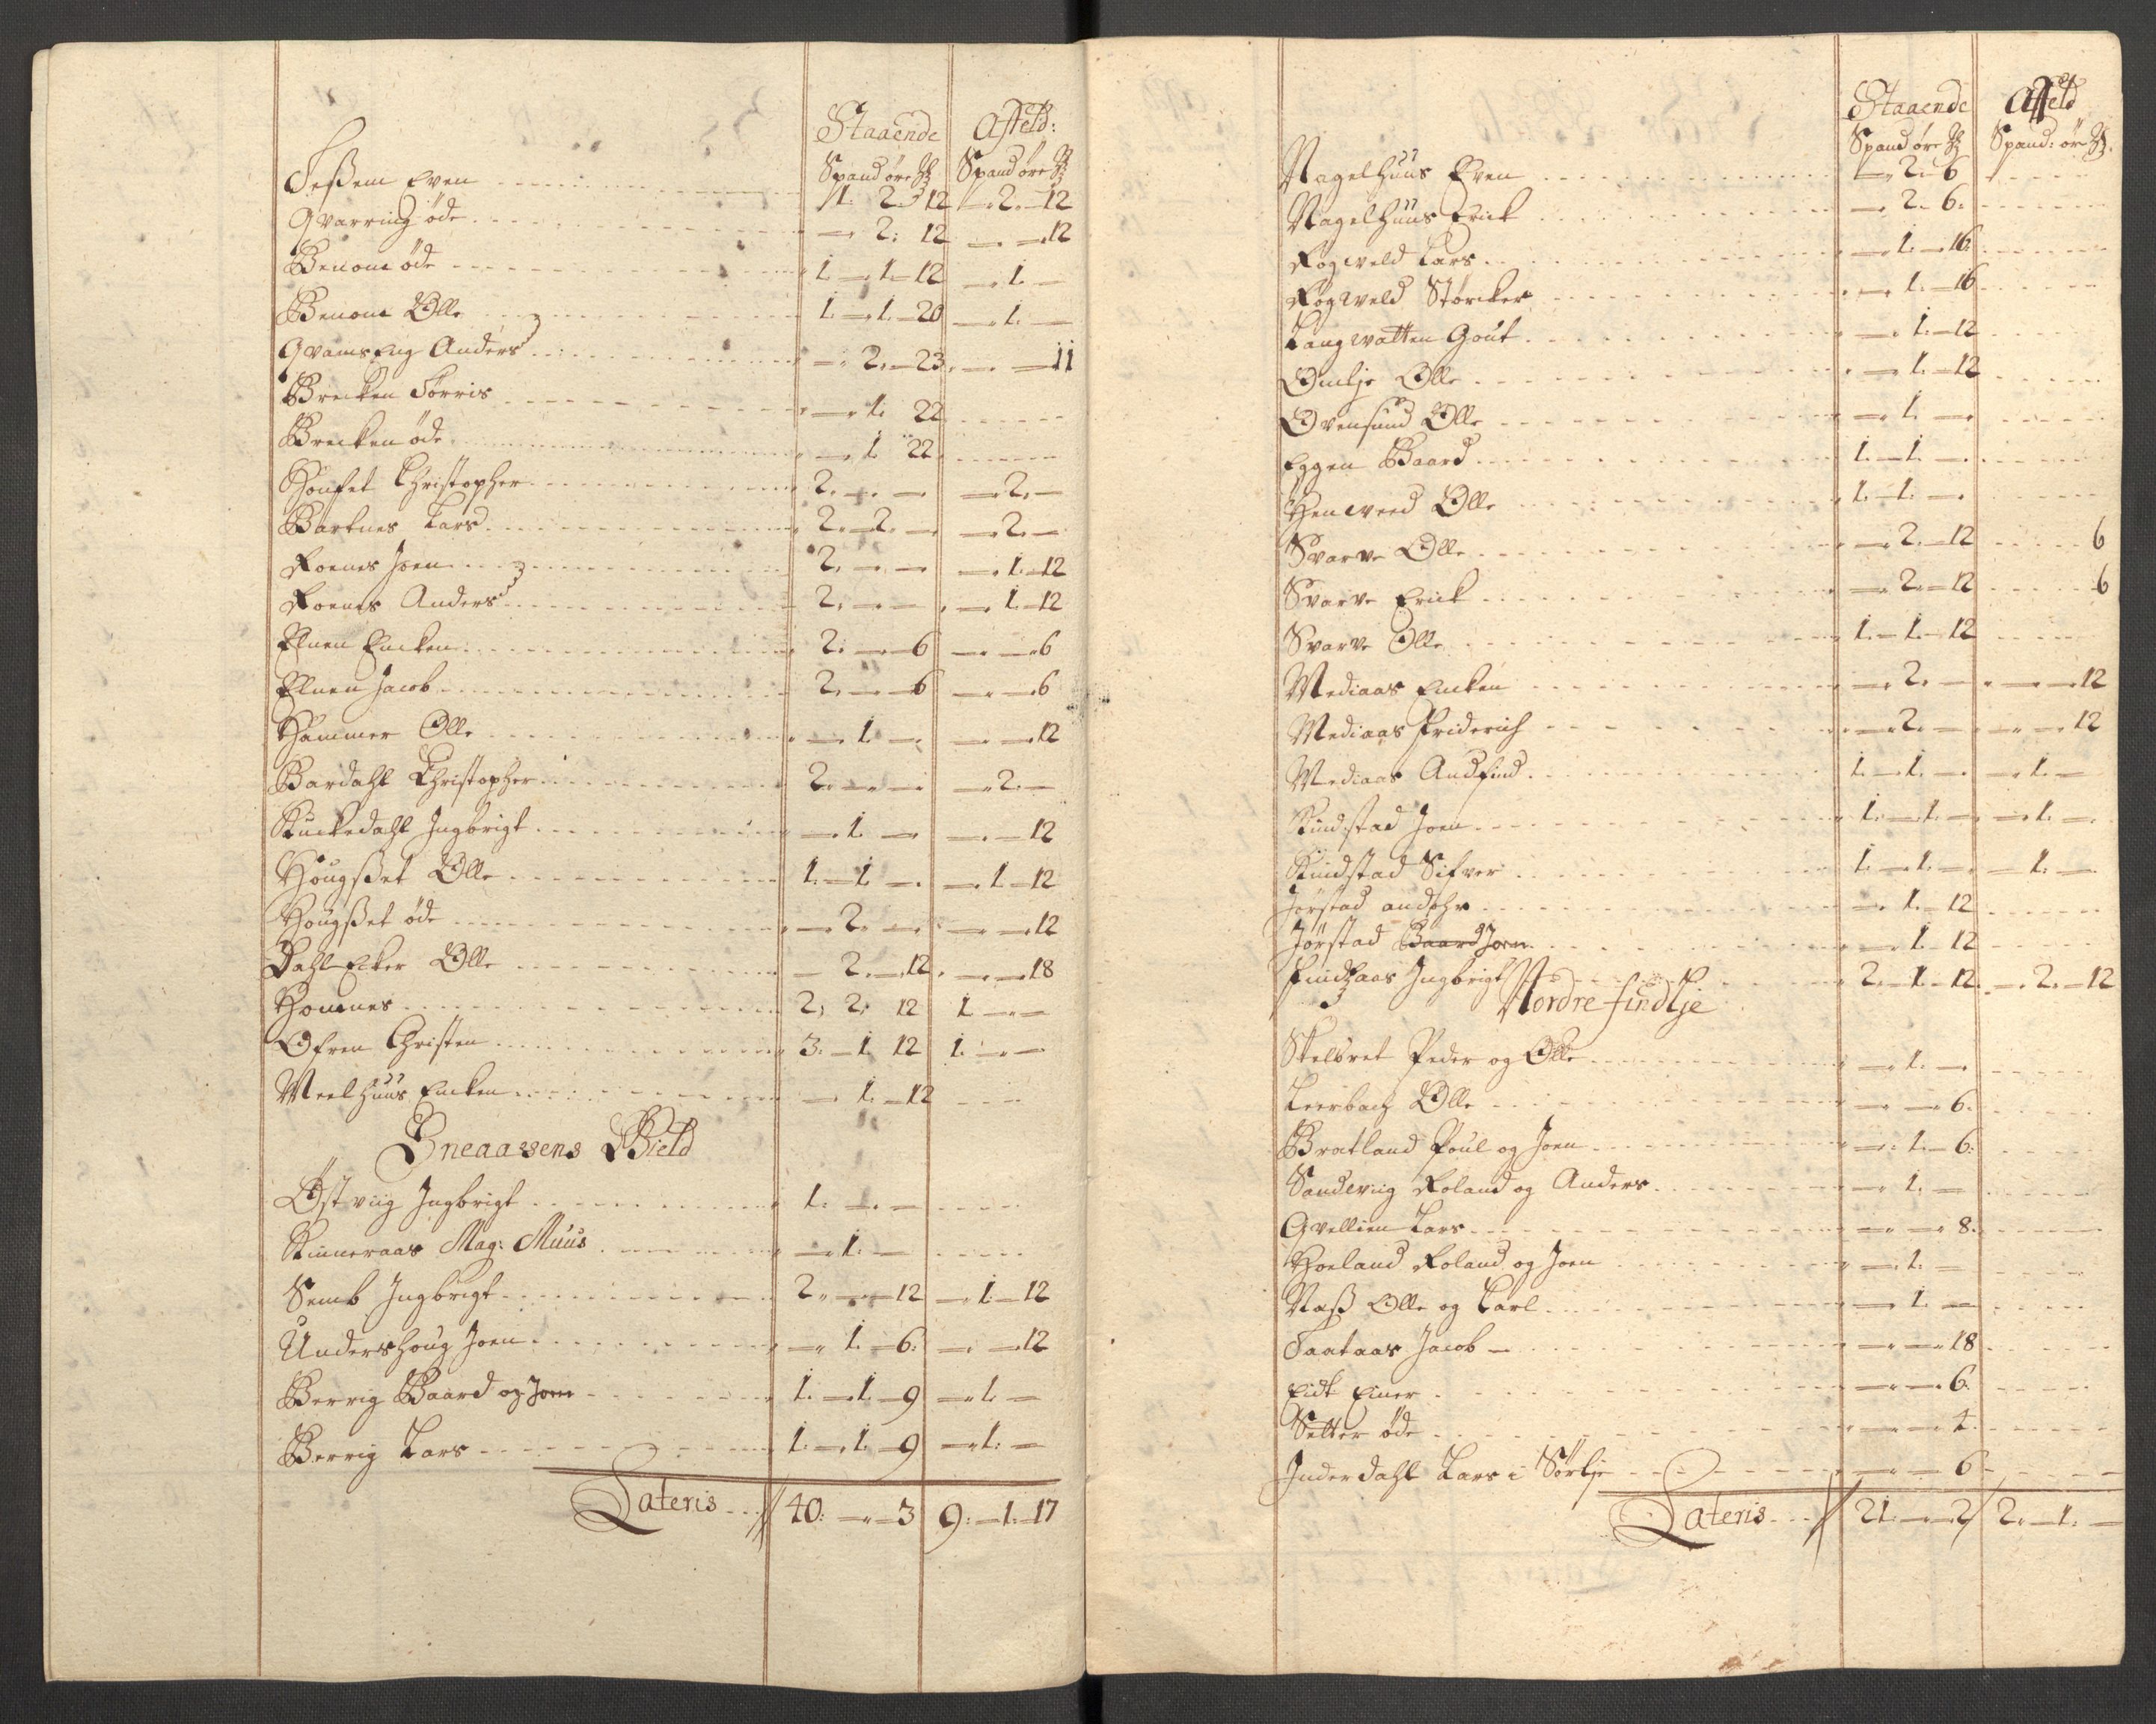 Staaende Affeld:
Spand øre Spand øre
Feßem Even 1. 2. 12 — 2. — 12
Qvarring øde — 2: 12 — — 12
Benom øde 1 — 1 — 12 — 1 —
Benom Olle 1. — 1. — 20 — 1. —
Qvams Eng Anders — 2. — 23. — — 11
Brecken Torris — 1. 22
Brecken øde — 1 22
Christopher 2. — — — 2. —
Bartnes Lars 2. — 2. — — 2. —
Roenes Joen 2. — — — 1. — 12
Roenes Anders 2. — — — 1. — 12
Elnen Encken 2. — — 6 — — 6
Elnen Jacob 2. — — 6 — — 6
Hammer Olle — 1. — — — 12
Bardahl Christopher 2. — — — 2. —
Stuckedahl Ingbrigt — 1. — — — 12
Hougßet Olle 1. — 1. — — 1 — 12
Hougßet øde — 2. — — — 12
Dahl Ecker Olle — 2. — 12. — — 18
Homnes 2; 2; 12 1 — —
Ofren Christen 3. — 1. 12 1. — —
Meelhuus Encken — 1. — 12
Sneaasens Gield
Østviig Ingbrigt 1. — —
Kinneraas Mag: Muus — 1. —
Semb Ingbrigt 2 — — 12 — 1. — 12
Undershoug Joen — 1 — 6. — — 12
Berrig Baard og Joen 1. — 1. — 9 — 1. —
Berrig Lars 1. — 1. — 9 — 1. —
Lateris 40. — — 3 9. — 1. — 17
Staaende Affeld
Spand øre Spand: øre
Nagelhuus Even — 2. 6
Nagelhuus Erick — 2. 6.
Rogweld Lars — 1. — 16
Rogweld Størcker — 1. — 16
Langwatten Gout — 1. — 12
Omlje Olle — 1. — 12
Ovensund Olle — 1. —
Eggen Baard 1. — 1. —
Henweed Olle 1. — 1. —
Svarve Olle — 2. — 12 6
Svarve Erick — 2. — 12 6
Svarve Olle 1. — 1. — 12
Mediaas Encken — 2. — — — 12
Mediaas Friderich — 2. — — — 12
Mediaas Andfind 1. — 1. — — 1. —
Kindstad Joen 1. — 1. — — 1. —
Kindstad Sifver 1. — 1. — — 1. —
Jørstad — 1. — 12
Jørstad Baard Joen — 1. — 12
Findsaas Ingbrigt 2. — 1. — 12. — 2. — 12
Nordre findlje
Skelbret Peder og Olle — 1. —
Leerbach Olle — — 6.
Bratland Poul og Joen — 1. — 6.
Sandwiig Roland og Anders — 1. —
Qvellien Lars — — 8.
Hoeland Roland og Joen — 1. —
Naß Olle og Carl — 1. —
Taataas Jacob — — 18
Eidt Einer — — 6.
Setter øde — — 4.
Inderdahl Lars i Sørlje — — 6
Lateris 21. — — 2 2. — 1. —